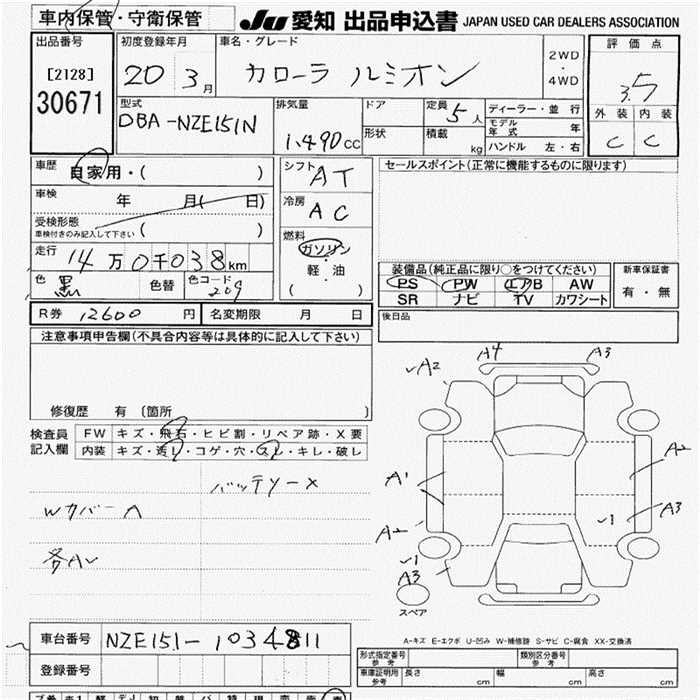 車内保管・守衛保管 JU 愛知 出品申込書 JAPAN USED CAR DEALERS ASSOCIATION
出品番号 初度登録年月 車名・グレード 2WD・4WD 評価点
[2128] 30671 20 3月 カローラ ルミオン 3.5
外装 内装
C C
型式 排気量 ドア 定員 5人 ディーラー・並行
DBA-NZE151N 1.490cc 形状 積載 kg モデル年式 年
ハンドル 左・右
車歴 自家用・( ) シフト AT セールスポイント(正常に機能するものに限ります)
車検 年 月( 日) 冷房 AC
受検形態
車検付きのみ記入して下さい ( )
走行 14万0千038km 燃料 ガソリン・軽油 ( )
色 黒 色替 色コード 209
装備品(純正品に限り○をつけてください) 新車保証書
PS PW エアB AW 有・無
SR ナビ TV カワシート
R券 12600円 名変期限 月 日 後日品
注意事項申告欄(不具合内容等は具体的に記入して下さい)
修復歴 有 〔箇所 〕
検査員記入欄 FW キズ・飛石・ヒビ割・リペア跡・X要
内装 キズ・汚レ・コゲ・穴・スレ・キレ・破レ
バッテリー×
Wカバー A
各AU
A4 A3
√A2
A1 A2
A2 √1 A3
√1
A3
スペア
A-キズ E-エクボ U-凹み W-補修跡 S-サビ C-腐食 XX-交換済
車台番号 NZE151-1034811
登録番号
形式指定番号 参考 類別区分番号 参考
車庫証明用 参考 長さ cm 幅 cm 高さ cm